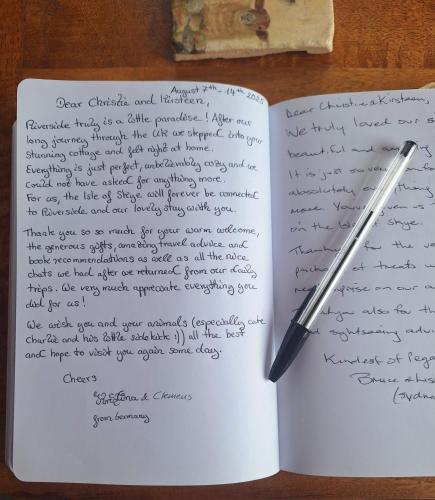 August 7th - 14th 2025
Dear Christie and Kirsteen,
Riverside truly is a little paradise! After our
long journey through the UK we stepped into your
stunning cottage and felt right at home.
Everything is just perfect, unbelievably cozy and we
could not have asked for anything more.
For us, the Isle of Skye will forever be connected
to Riverside and our lovely stay with you.
Thank you so so much for your warm welcome,
the generous gifts, amazing travel advice and
book recommendations as well as all the nice
chats we had after we returned from our daily
trips. We very much appreciate everything you
did for us!
We wish you and your animals (especially cute
Charlie and his little sidekick :)) all the best
and hope to visit you again some day.
Cheers
& Clemens
from Germany
Dear Christine & Kirsteen,
We truly loved our s
beautiful and
It is just so very
absolutely thing
more.
on the Isle of Skye.
Than for the
of treats
on our
also for th
sightseeing advi
Kindest of Rega
Bruce &
(Sydn